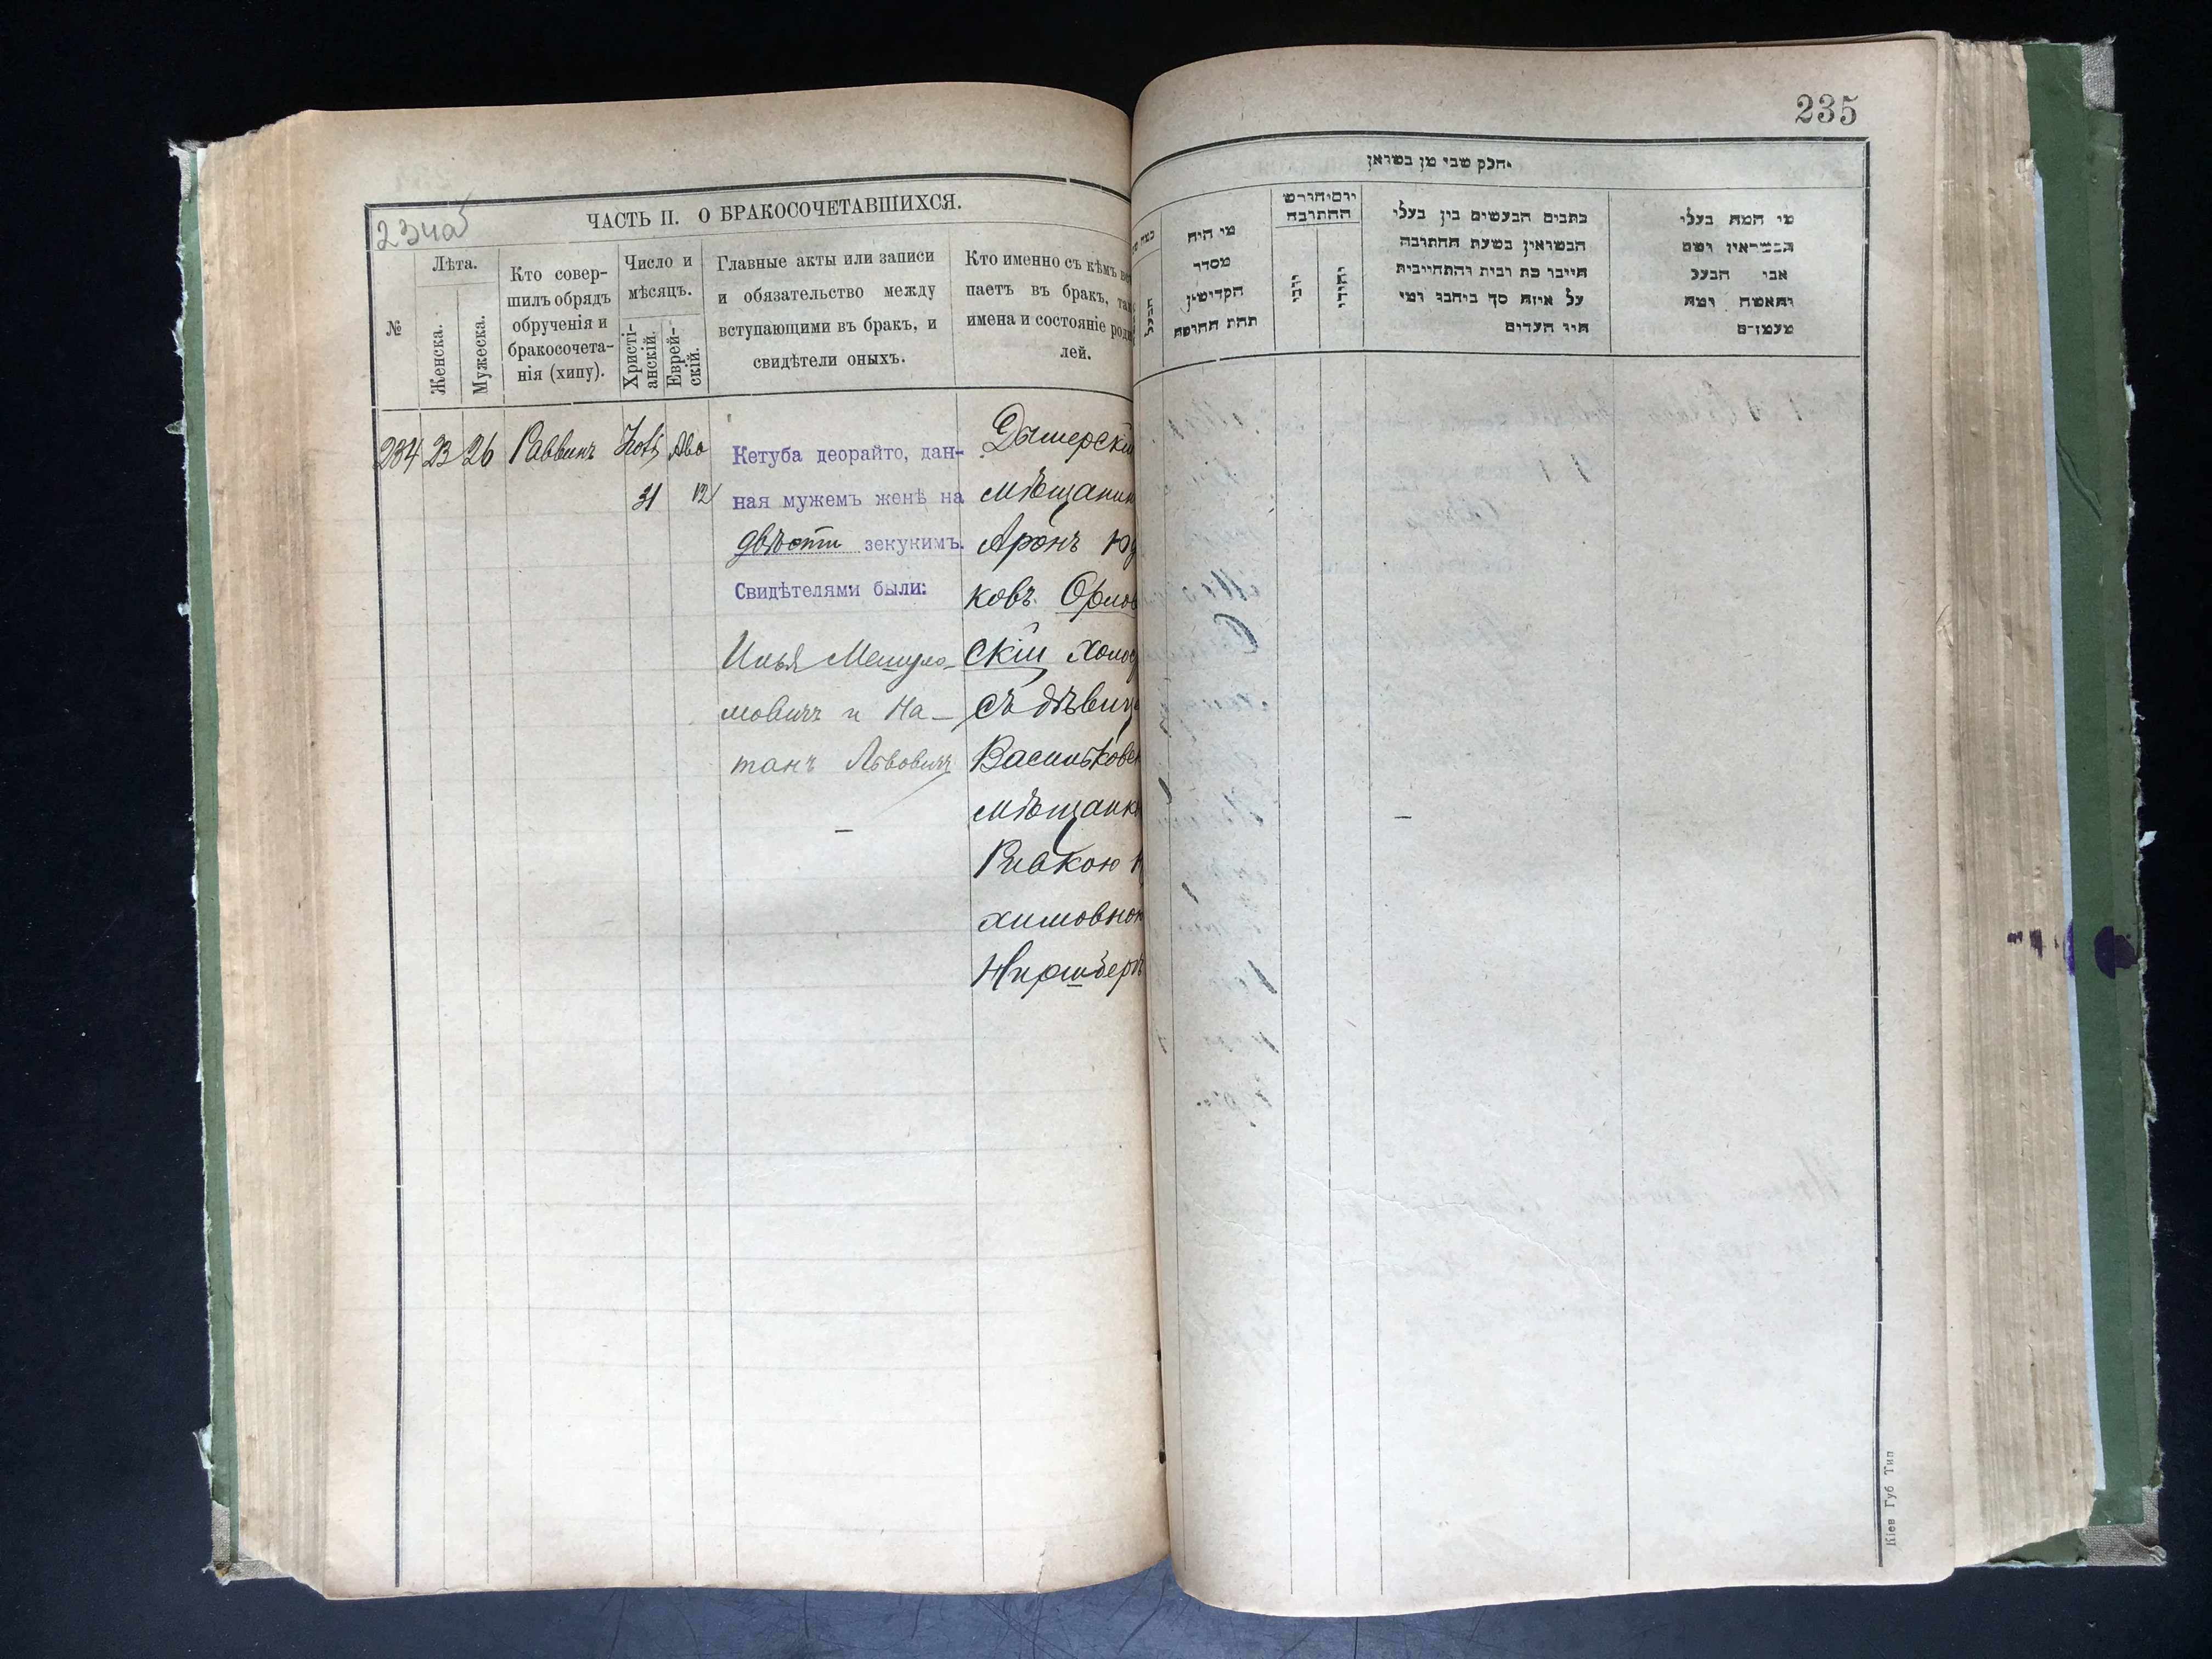 234об
ЧАСТЬ II. О БРАКОСОЧЕТАВШИХСЯ.
№
Лѣта.
Женска.
Мужеска.
Кто совер-
шилъ обрядъ
обрученія и
бракосочета-
нія (хипу).
Число и
мѣсяцъ.
Христі-
анскій.
Еврей-
скій.
Главные акты или записи
и обязательство между
вступающими въ бракъ, и
свидѣтели оныхъ.
Кто именно съ кѣмъ
паетъ въ бракъ,
имена и состояніе
лей.
234 23 26 Раввинъ
31 12
Кетуба деорайто, дан-
ная мужемъ женѣ на
двѣсти зекукимъ.
Свидѣтелями были:
Илья Мешуло-
мовичъ и На-
танъ Львовичъ
Дымерскій
мѣщанин
Аронъ Юд
ковъ Орлов
скій холос
съ дѣвиц
Васильковск
мѣщанк
Ривкою Н
химовною
Ниршберг
235
חלק שני מן נשואין
מי היה
מסדר
הקדושין
תחת החופה
הבעל
יום וחודש
החתונה
נוצרי
יהודי
כתבים הנעשים בין בעלי
הנשואין בשעת החתונה
חייבו כח ובית והתחייבות
על איזה סך ניתנו ומי
היו העדים
מי המה בעלי
הנשואין ושם
אבי הבעל
והאשה ומה
מעמדם
Кіев Губ Тип